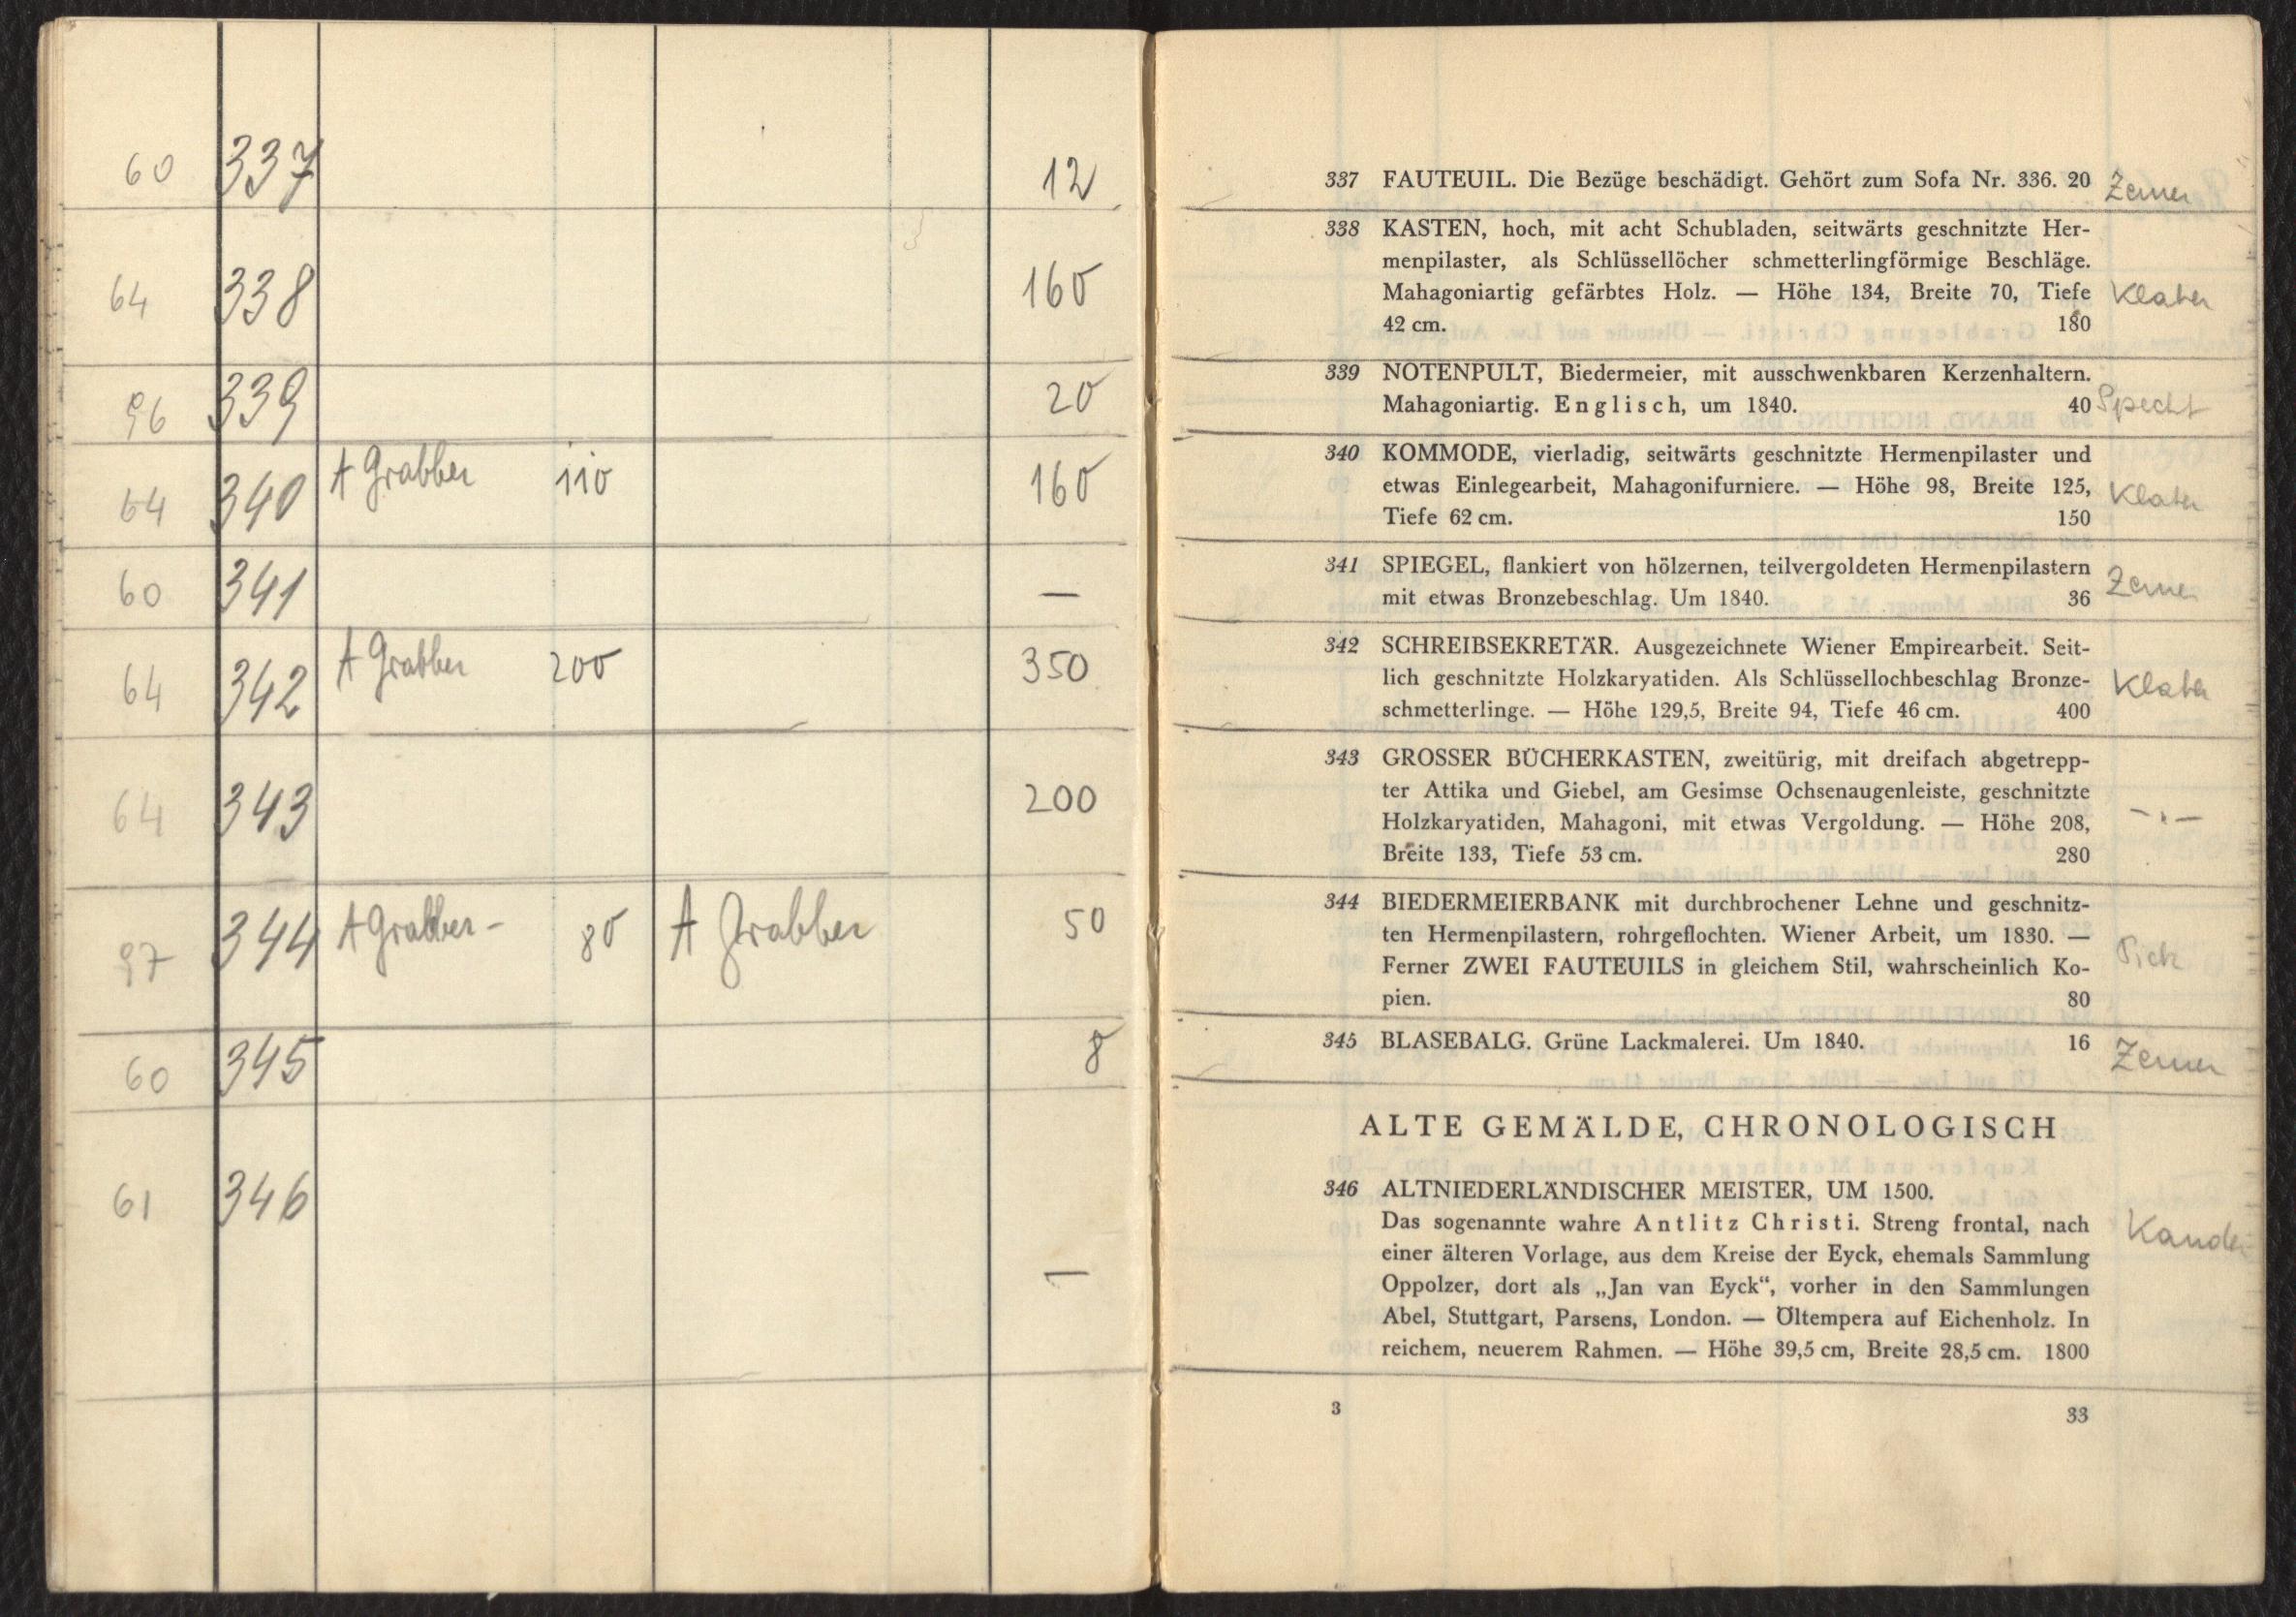 60 337 12
64 338 160
96 339 20
64 340 A Grabber 110 160
60 341 —
64 342 A Grabber 200 350
64 343 200
97 344 A Grabber - 80 A Grabber 50
60 345 8
61 346 —
337 FAUTEUIL. Die Bezüge beschädigt. Gehört zum Sofa Nr. 336. 20 Zerner
338 KASTEN, hoch, mit acht Schubladen, seitwärts geschnitzte Her-
menpilaster, als Schlüssellöcher schmetterlingförmige Beschläge.
Mahagoniartig gefärbtes Holz. — Höhe 134, Breite 70, Tiefe Klaber
42 cm. 180
339 NOTENPULT, Biedermeier, mit ausschwenkbaren Kerzenhaltern.
Mahagoniartig. Englisch, um 1840. 40 Specht
340 KOMMODE, vierladig, seitwärts geschnitzte Hermenpilaster und
etwas Einlegearbeit, Mahagonifurniere. — Höhe 98, Breite 125, Klaber
Tiefe 62 cm. 150
341 SPIEGEL, flankiert von hölzernen, teilvergoldeten Hermenpilastern Zerner
mit etwas Bronzebeschlag. Um 1840. 36
342 SCHREIBSEKRETÄR. Ausgezeichnete Wiener Empirearbeit. Seit-
lich geschnitzte Holzkaryatiden. Als Schlüssellochbeschlag Bronze- Klaber
schmetterlinge. — Höhe 129,5, Breite 94, Tiefe 46 cm. 400
343 GROSSER BÜCHERKASTEN, zweitürig, mit dreifach abgetrepp-
ter Attika und Giebel, am Gesimse Ochsenaugenleiste, geschnitzte
Holzkaryatiden, Mahagoni, mit etwas Vergoldung. — Höhe 208, —"—
Breite 133, Tiefe 53 cm. 280
344 BIEDERMEIERBANK mit durchbrochener Lehne und geschnitz-
ten Hermenpilastern, rohrgeflochten. Wiener Arbeit, um 1830. —
Ferner ZWEI FAUTEUILS in gleichem Stil, wahrscheinlich Ko- Pick
pien. 80
345 BLASEBALG. Grüne Lackmalerei. Um 1840. 16 Zerner
ALTE GEMÄLDE, CHRONOLOGISCH
346 ALTNIEDERLÄNDISCHER MEISTER, UM 1500.
Das sogenannte wahre Antlitz Christi. Streng frontal, nach
einer älteren Vorlage, aus dem Kreise der Eyck, ehemals Sammlung
Oppolzer, dort als „Jan van Eyck“, vorher in den Sammlungen
Abel, Stuttgart, Parsens, London. — Öltempera auf Eichenholz. In
reichem, neuerem Rahmen. — Höhe 39,5 cm, Breite 28,5 cm. 1800
3 33